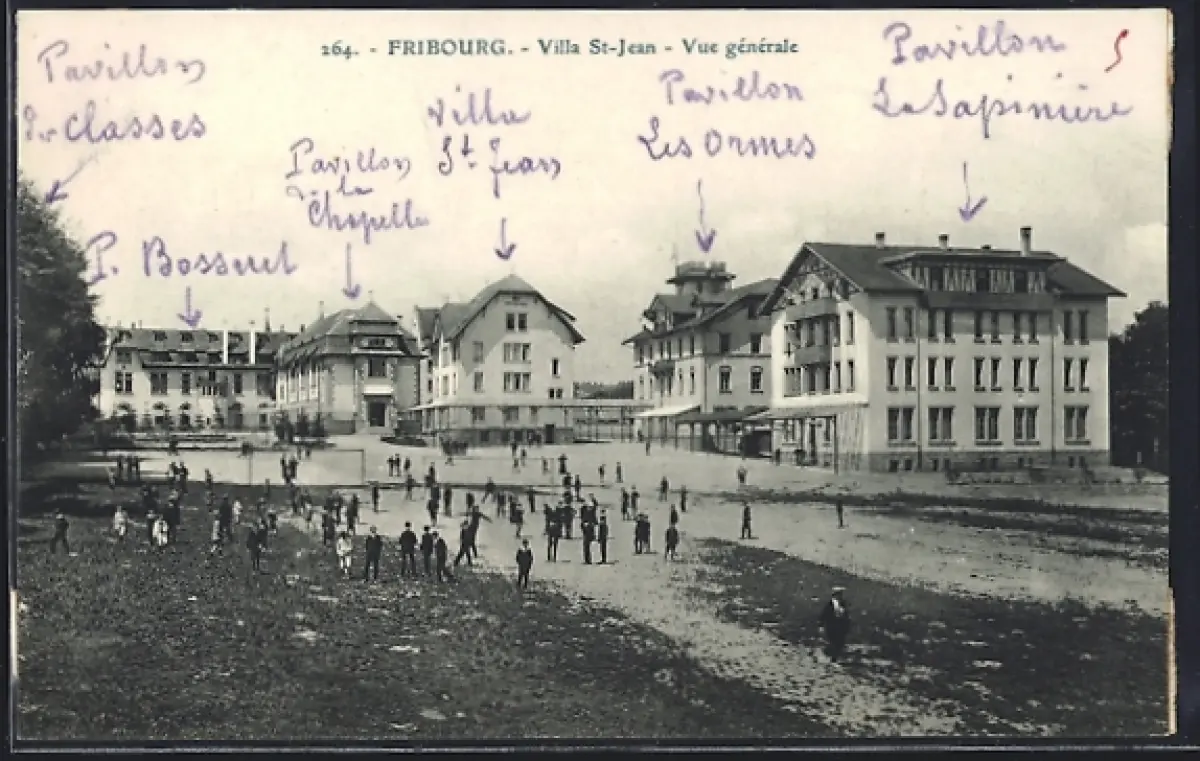 264. - FRIBOURG. - Villa St-Jean - Vue générale
Pavillon
des classes
P. Bossuet
Pavillon
de la
Chapelle
Villa
St. Jean
Pavillon
Les Ormes
Pavillon
La Sapinière
5